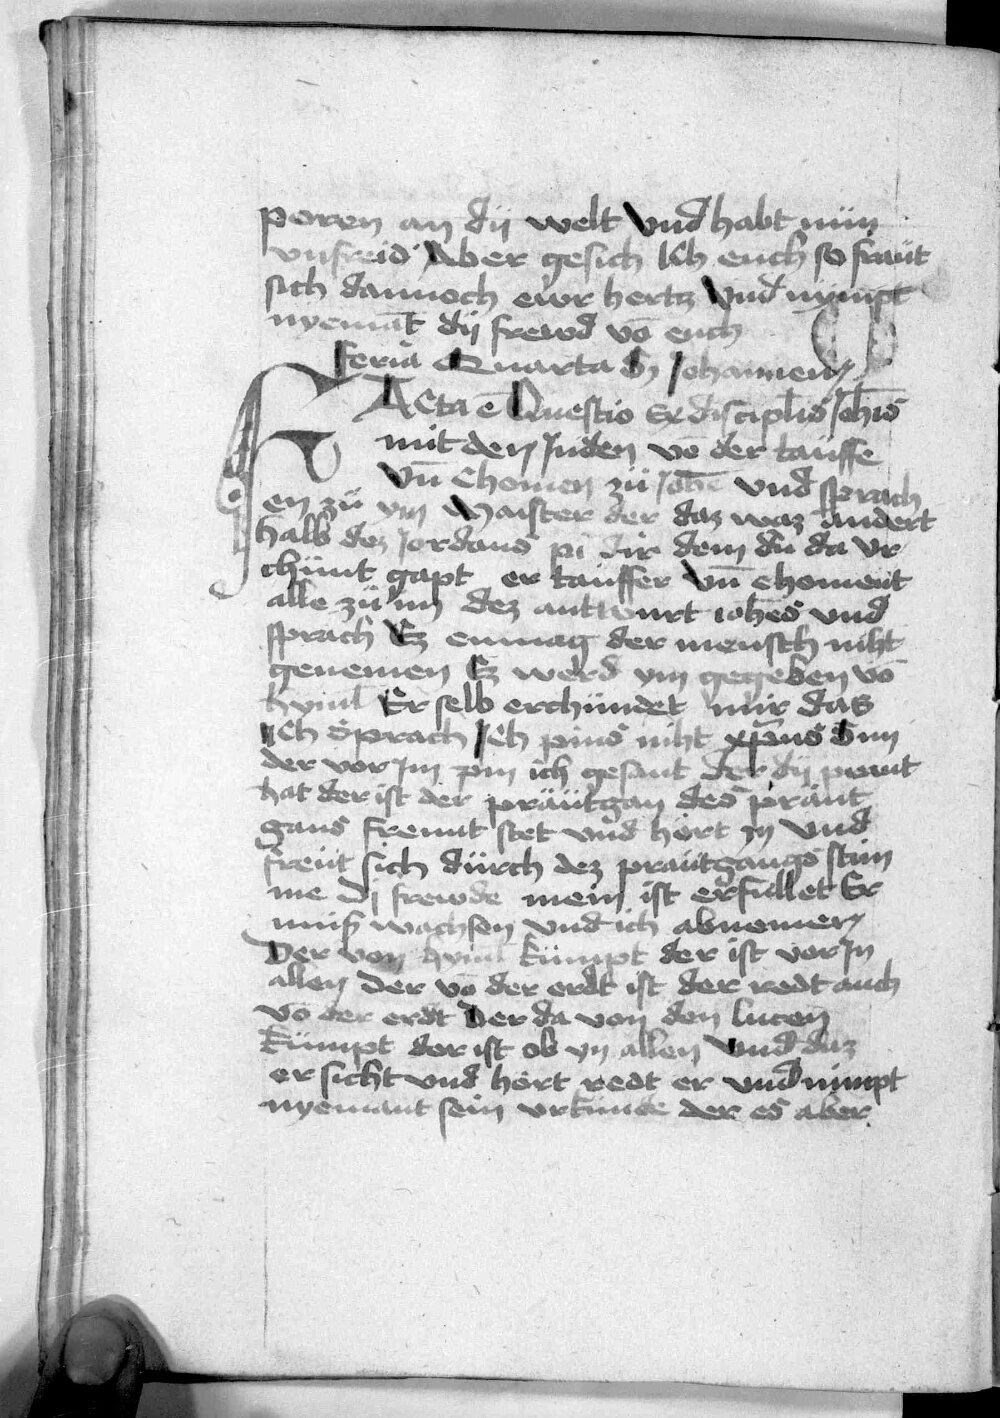 poren an dij welt Vnd habt nün
vnfreid Aber gesich Ich euch so fraüt
sich dannoch ewr hertz Vnd nympt
nyemāt dij frewd vō euch
Feria Quarta S Johannem
FActa ē Questio Ex discipl̄is Joh̄is
mit den Juden vō der taüffe
Vn̄ Chomen zü Joh̄e vnd sprach
en zü ym Maister der daz waz andert
halb dez Jordans pi dir dem du da vr
chünt gapt er taüffer Vn̄ choment
alle zü im dez antwurt ioh̄es vnd
sprach Ez enmag der mensch niht
genemen Ez werd ym gegeben vō
hyml̄ Er selb erchündet mir das
Ich Sprach Ich pins niht xp̄us Sun
der vor Im pin ich gesant der dij praut
hat der ist der präütgan des präut
gans freunt stet vnd hört yn vnd
freüt sich dürch dez praütgangs stim
me Dj frewde mein ist erfullet Er
müß wachsen vnd ich abnemen
Der von hyml̄ kümpt der ist vor In
allen Der vō der erdt ist der redt auch
vō der erdt Der da von den lucen
kümpt der ist ob yn allen Vnd daz
er sicht vnd hört redt er vnd nimpt
nyemant sein vrkünde der es aber